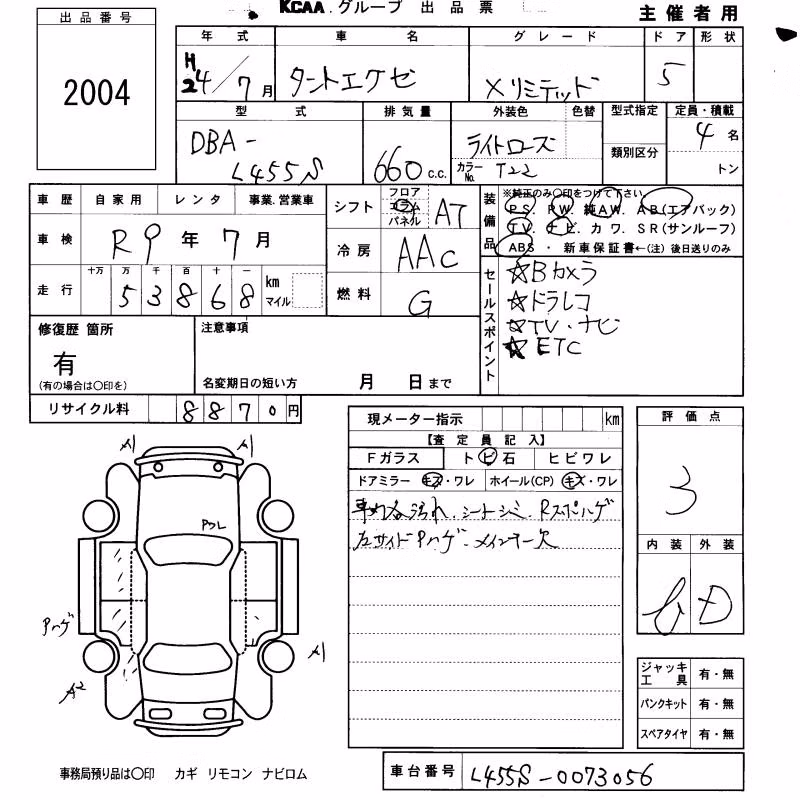 KCAA.グループ 出品票
主催者用
出品番号
2004
年式 車名 グレード ドア 形状
H24/7月 タントエグゼ Xリミテッド 5
型式 排気量 外装色 色替 型式指定 定員・積載
DBA-L455S 660 c.c. ライトローズ 類別区分 4名
カラーNo. T22 トン
車歴 自家用 レンタ 事業.営業車
車検 R9年7月
走行 十万 万 千 百 十 一 km マイル
53868
シフト フロア コラム パネル AT
冷房 AAC
燃料 G
装備品
※純正のみ○印をつけて下さい
PS. PW. 純AW. AB(エアバック)
TV. ナビ. カワ. SR(サンルーフ)
ABS ・ 新車保証書←(注) 後日送りのみ
セールスポイント
☆Bカメラ
☆ドラレコ
☆TV・ナビ
☆ETC
修復歴 箇所
有
(有の場合は○印を)
注意事項
名変期日の短い方 月 日まで
リサイクル料 8870円
現メーター指示 km
【査定員記入】
Fガラス トビ石 ヒビワレ
ドアミラー キズ・ワレ ホイール(CP) キズ・ワレ
車内各汚れ.シートシミ.Rスポハゲ
左サイドPハゲ.メインキー欠
評価点
3
内装 外装
D
ジャッキ工具 有・無
パンクキット 有・無
スペアタイヤ 有・無
A1 A1
Pハゲ
A1
A2
事務局預り品は○印 カギ リモコン ナビロム
車台番号 L455S-0073056